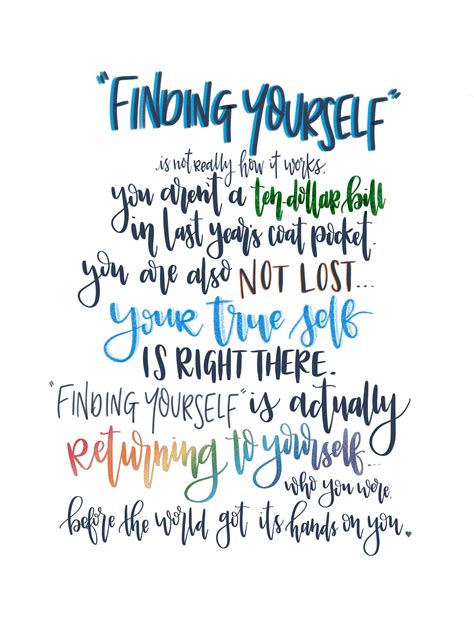 "FINDING YOURSELF"
is not really how it works.
you aren't a ten-dollar bill
in last year's coat pocket.
you are also NOT LOST...
your true self
IS RIGHT THERE.
"FINDING YOURSELF" is actually
Returning to yourself...
who you were.
before the world got its hands on you.